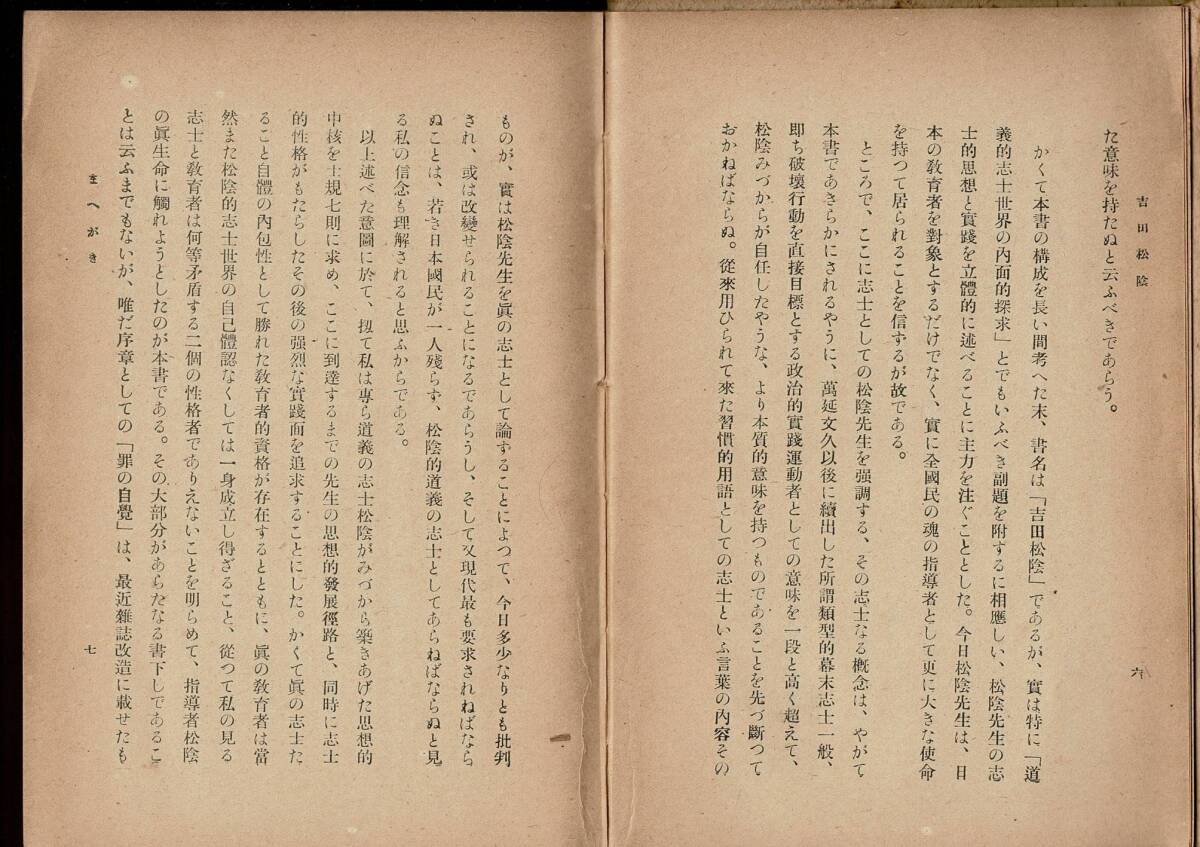 吉田松陰
六
た意味を持たぬと云ふべきであらう。
かくて本書の構成を長い間考へた末、書名は「吉田松陰」であるが、實は特に「道
義的志士世界の內面的探求」とでもいふべき副題を附するに相應しい、松陰先生の志
士的思想と實踐を立體的に述べることに主力を注ぐこととした。今日松陰先生は、日
本の敎育者を對象とするだけでなく、實に全國民の魂の指導者として更に大きな使命
を持つて居られることを信ずるが故である。
ところで、ここに志士としての松陰先生を强調する、その志士なる槪念は、やがて
本書であきらかにされるやうに、萬延文久以後に續出した所謂類型的幕末志士一般、
卽ち破壞行動を直接目標とする政治的實踐運動者としての意味を一段と高く超えて、
松陰みづからが自任したやうな、より本質的意味を持つものであることを先づ斷つて
おかねばならぬ。從來用ひられて來た習慣的用語としての志士といふ言葉の內容その
ものが、實は松陰先生を眞の志士として論ずることによつて、今日多少なりとも批判
され、或は改變せられることになるであらうし、そして又現代最も要求されねばなら
ぬことは、若き日本國民が一人殘らず、松陰的道義の志士としてあらねばならぬと見
る私の信念も理解されると思ふからである。
以上述べた意圖に於て、扨て私は專ら道義の志士松陰がみづから築きあげた思想的
中核を士規七則に求め、ここに到達するまでの先生の思想的發展徑路と、同時に志士
的性格がもたらしたその後の强烈な實踐面を追求することにした。かくて眞の志士た
ること自體の內包性として勝れた敎育者的資格が存在するとともに、眞の敎育者は當
然また松陰的志士世界の自己體認なくしては一身成立し得ざること、從つて私の見る
志士と敎育者は何等矛盾する二個の性格者でありえないことを明らめて、指導者松陰
の眞生命に觸れようとしたのが本書である。その大部分があらたなる書下しであるこ
とは云ふまでもないが、唯だ序章としての「罪の自覺」は、最近雜誌改造に載せたも
まへがき
七